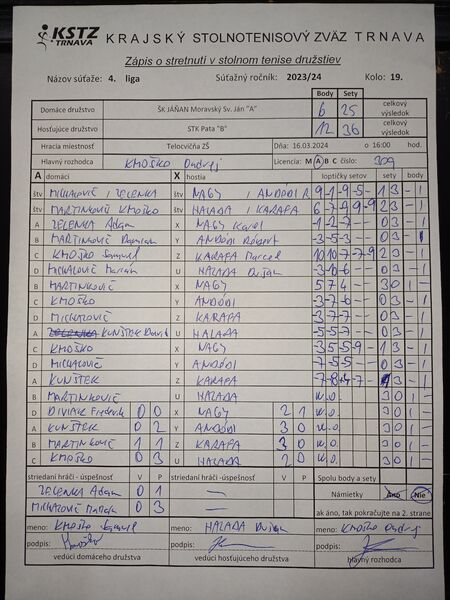 KSTZ TRNAVA KRAJSKÝ STOLNOTENISOVÝ ZVÄZ TRNAVA
Zápis o stretnutí v stolnom tenise družstiev
Názov súťaže: 4. liga Súťažný ročník: 2023/24 Kolo: 19.
Body Sety
Domáce družstvo ŠK JÁŇAN Moravský Sv. Ján "A" 6 25 celkový výsledok
Hosťujúce družstvo STK Pata "B" 12 36 celkový výsledok
Hracia miestnosť Telocvičňa ZŠ Dňa: 16.03.2024 o 16:00 hod.
Hlavný rozhodca KMOŠKO Ondrej Licencia: M A B C číslo: 309
A domáci X hostia loptičky setov sety body
štv MICHALOVIČ / ZELENKA štv NAGY / ANDÓDI R 9 -1 -9 -5 - 1 3 - 1
štv MARTINKOVIČ KMOŠKO štv HALADA / KARAFA 6 -7 9 -9 2 3 - 1
A ZELENKA Adam X NAGY Karol -1 -2 -7 - - 0 3 - 1
B MARTINKOVIČ Y ANDÓDI Róbert -3 -5 -3 - - 0 3 - 1
C KMOŠKO Samuel Z KARAFA Marcel 2 3 - 1
D MICHALOVIČ U HALADA Dušan 0 3 - 1
B MARTINKOVIČ X NAGY 5 7 4 - - 3 0 1 -
C KMOŠKO Y ANDÓDI -3 -7 -6 - - 0 3 - 1
D MICHALOVIČ Z KARAFA -3 -7 -7 - - 0 3 - 1
A KUNŠTEK David U HALADA -5 -5 -7 - - 0 3 - 1
C KMOŠKO X NAGY 1 3 - 1
D MICHALOVIČ Y ANDÓDI 0 3 - 1
A KUNŠTEK Z KARAFA 3 - 1
B MARTINKOVIČ U HALADA w.o. 3 0 1 -
D DIVIAK Frederik 0 0 X NAGY 2 1 w.o. 3 0 1 -
A KUNŠTEK 0 2 Y ANDÓDI 3 0 w.o. 3 0 1 -
B MARTINKOVIČ 1 1 Z KARAFA 3 0 w.o. 3 0 1 -
C KMOŠKO 0 3 U HALADA 2 0 w.o. 3 0 1 -
striedaní hráči - úspešnosť V P striedaní hráči - úspešnosť V P Spolu body a sety
ZELENKA Adam 0 1 — Námietky Áno Nie
MICHALOVIČ 0 3 — ak áno, tak pokračujte na 2. strane
meno: KMOŠKO Samuel meno: HALADA Dušan meno: KMOŠKO Ondrej
podpis: podpis: podpis:
vedúci domáceho družstva vedúci hosťujúceho družstva hlavný rozhodca